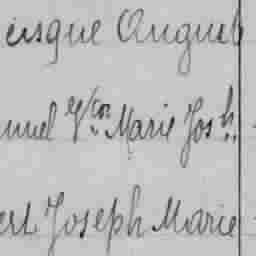 cisque August
nuel Vtor Marie Josh.
ert Joseph Marie